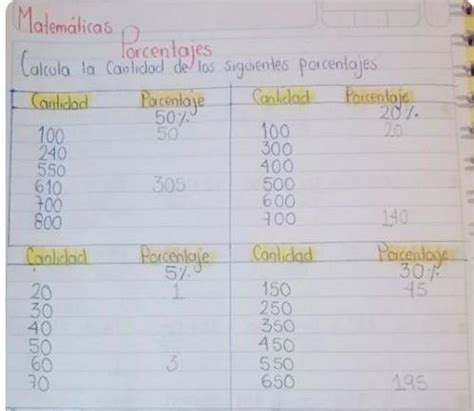 Matemáticas
Porcentajes
Calcula la Cantidad de los siguientes porcentajes
Cantidad Porcentaje Cantidad Porcentaje
50% 20%
100 50 100 20
240 300
550 400
610 305 500
700 600
800 700 140
Cantidad Porcentaje Cantidad Porcentaje
5% 30%
20 1 150 45
30 250
40 350
50 450
60 3 550
70 650 195